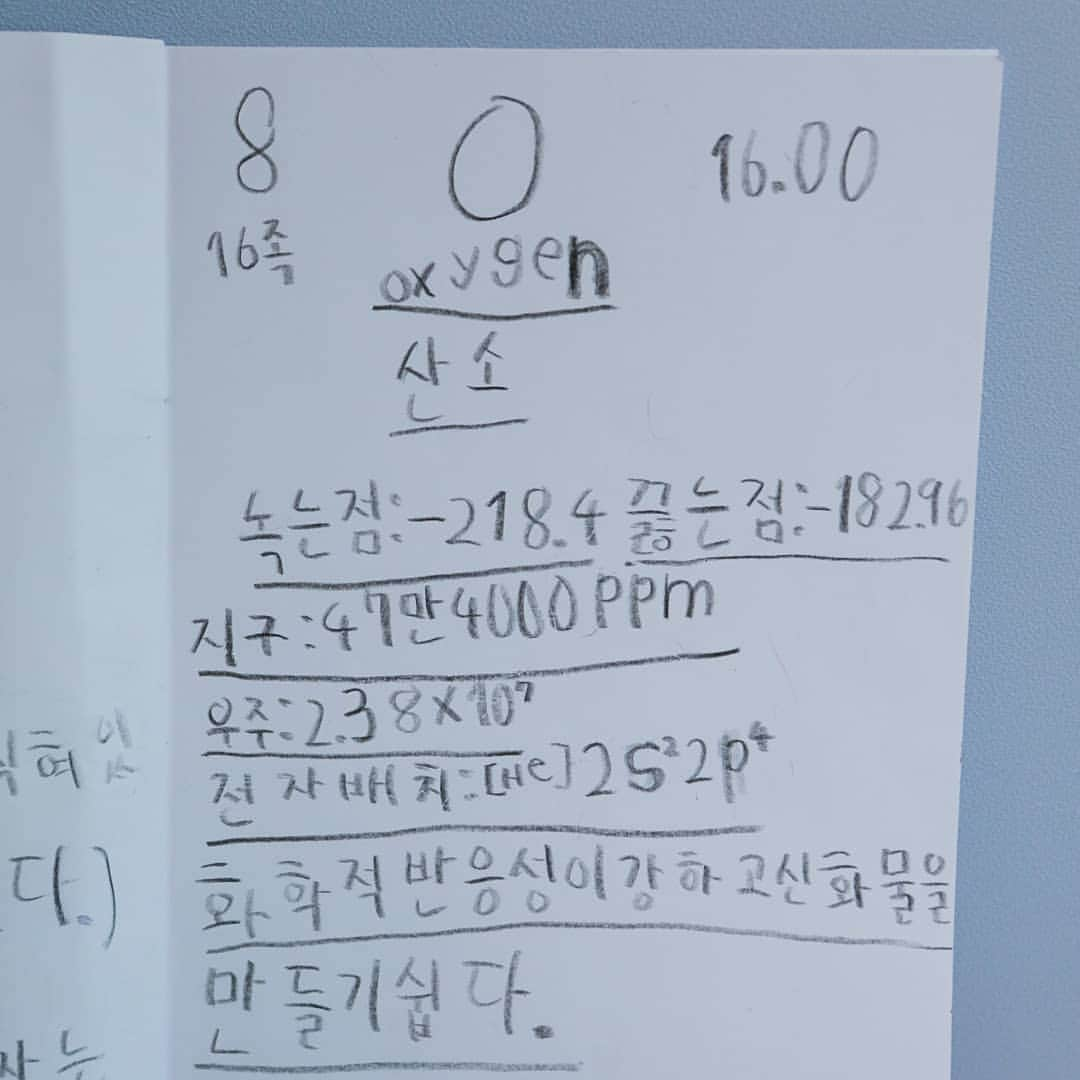 8 O 16.00
16족
oxygen
산소
녹는점:-218.4 끓는점:-182.96
지구:47만4000ppm
우주:2.38×10⁷
전자배치:[He]2s²2p⁴
화학적반응성이강하고산화물을
만들기쉽다.
다.)